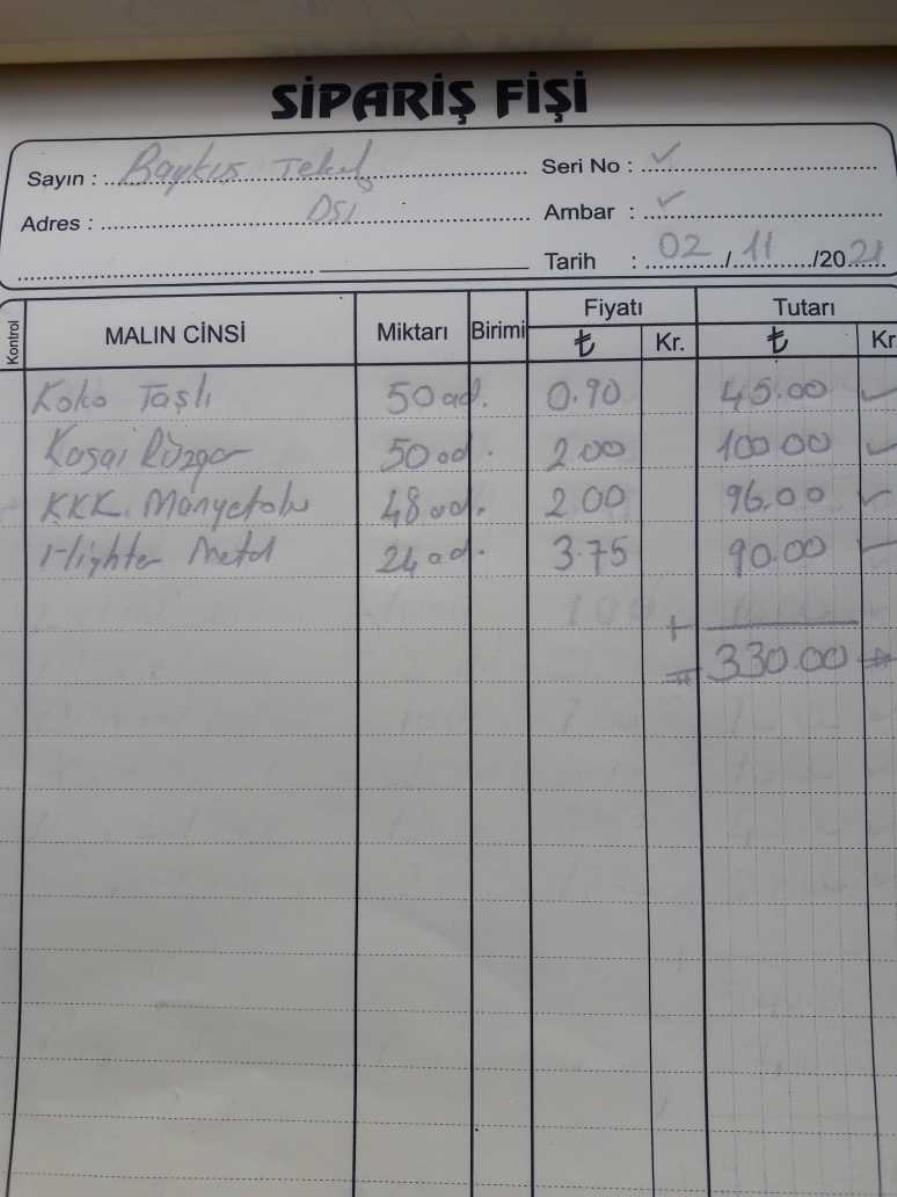 SİPARİŞ FİŞİ
Sayın : Baykuş Tekel Seri No : ✓
Adres : DSİ Ambar : ✓
Tarih : 02/11/2021
Kontrol MALIN CİNSİ Miktarı Birimi Fiyatı ₺ Kr. Tutarı ₺ Kr
Koko Taşlı 50 ad. 0.90 45.00 ✓
Kasai Rüzgar 50 ad. 2.00 100.00 ✓
KKK Manyetolu 48 ad. 2.00 96.00 ✓
Highter Metal 24 ad. 3.75 90.00
+
= 330.00